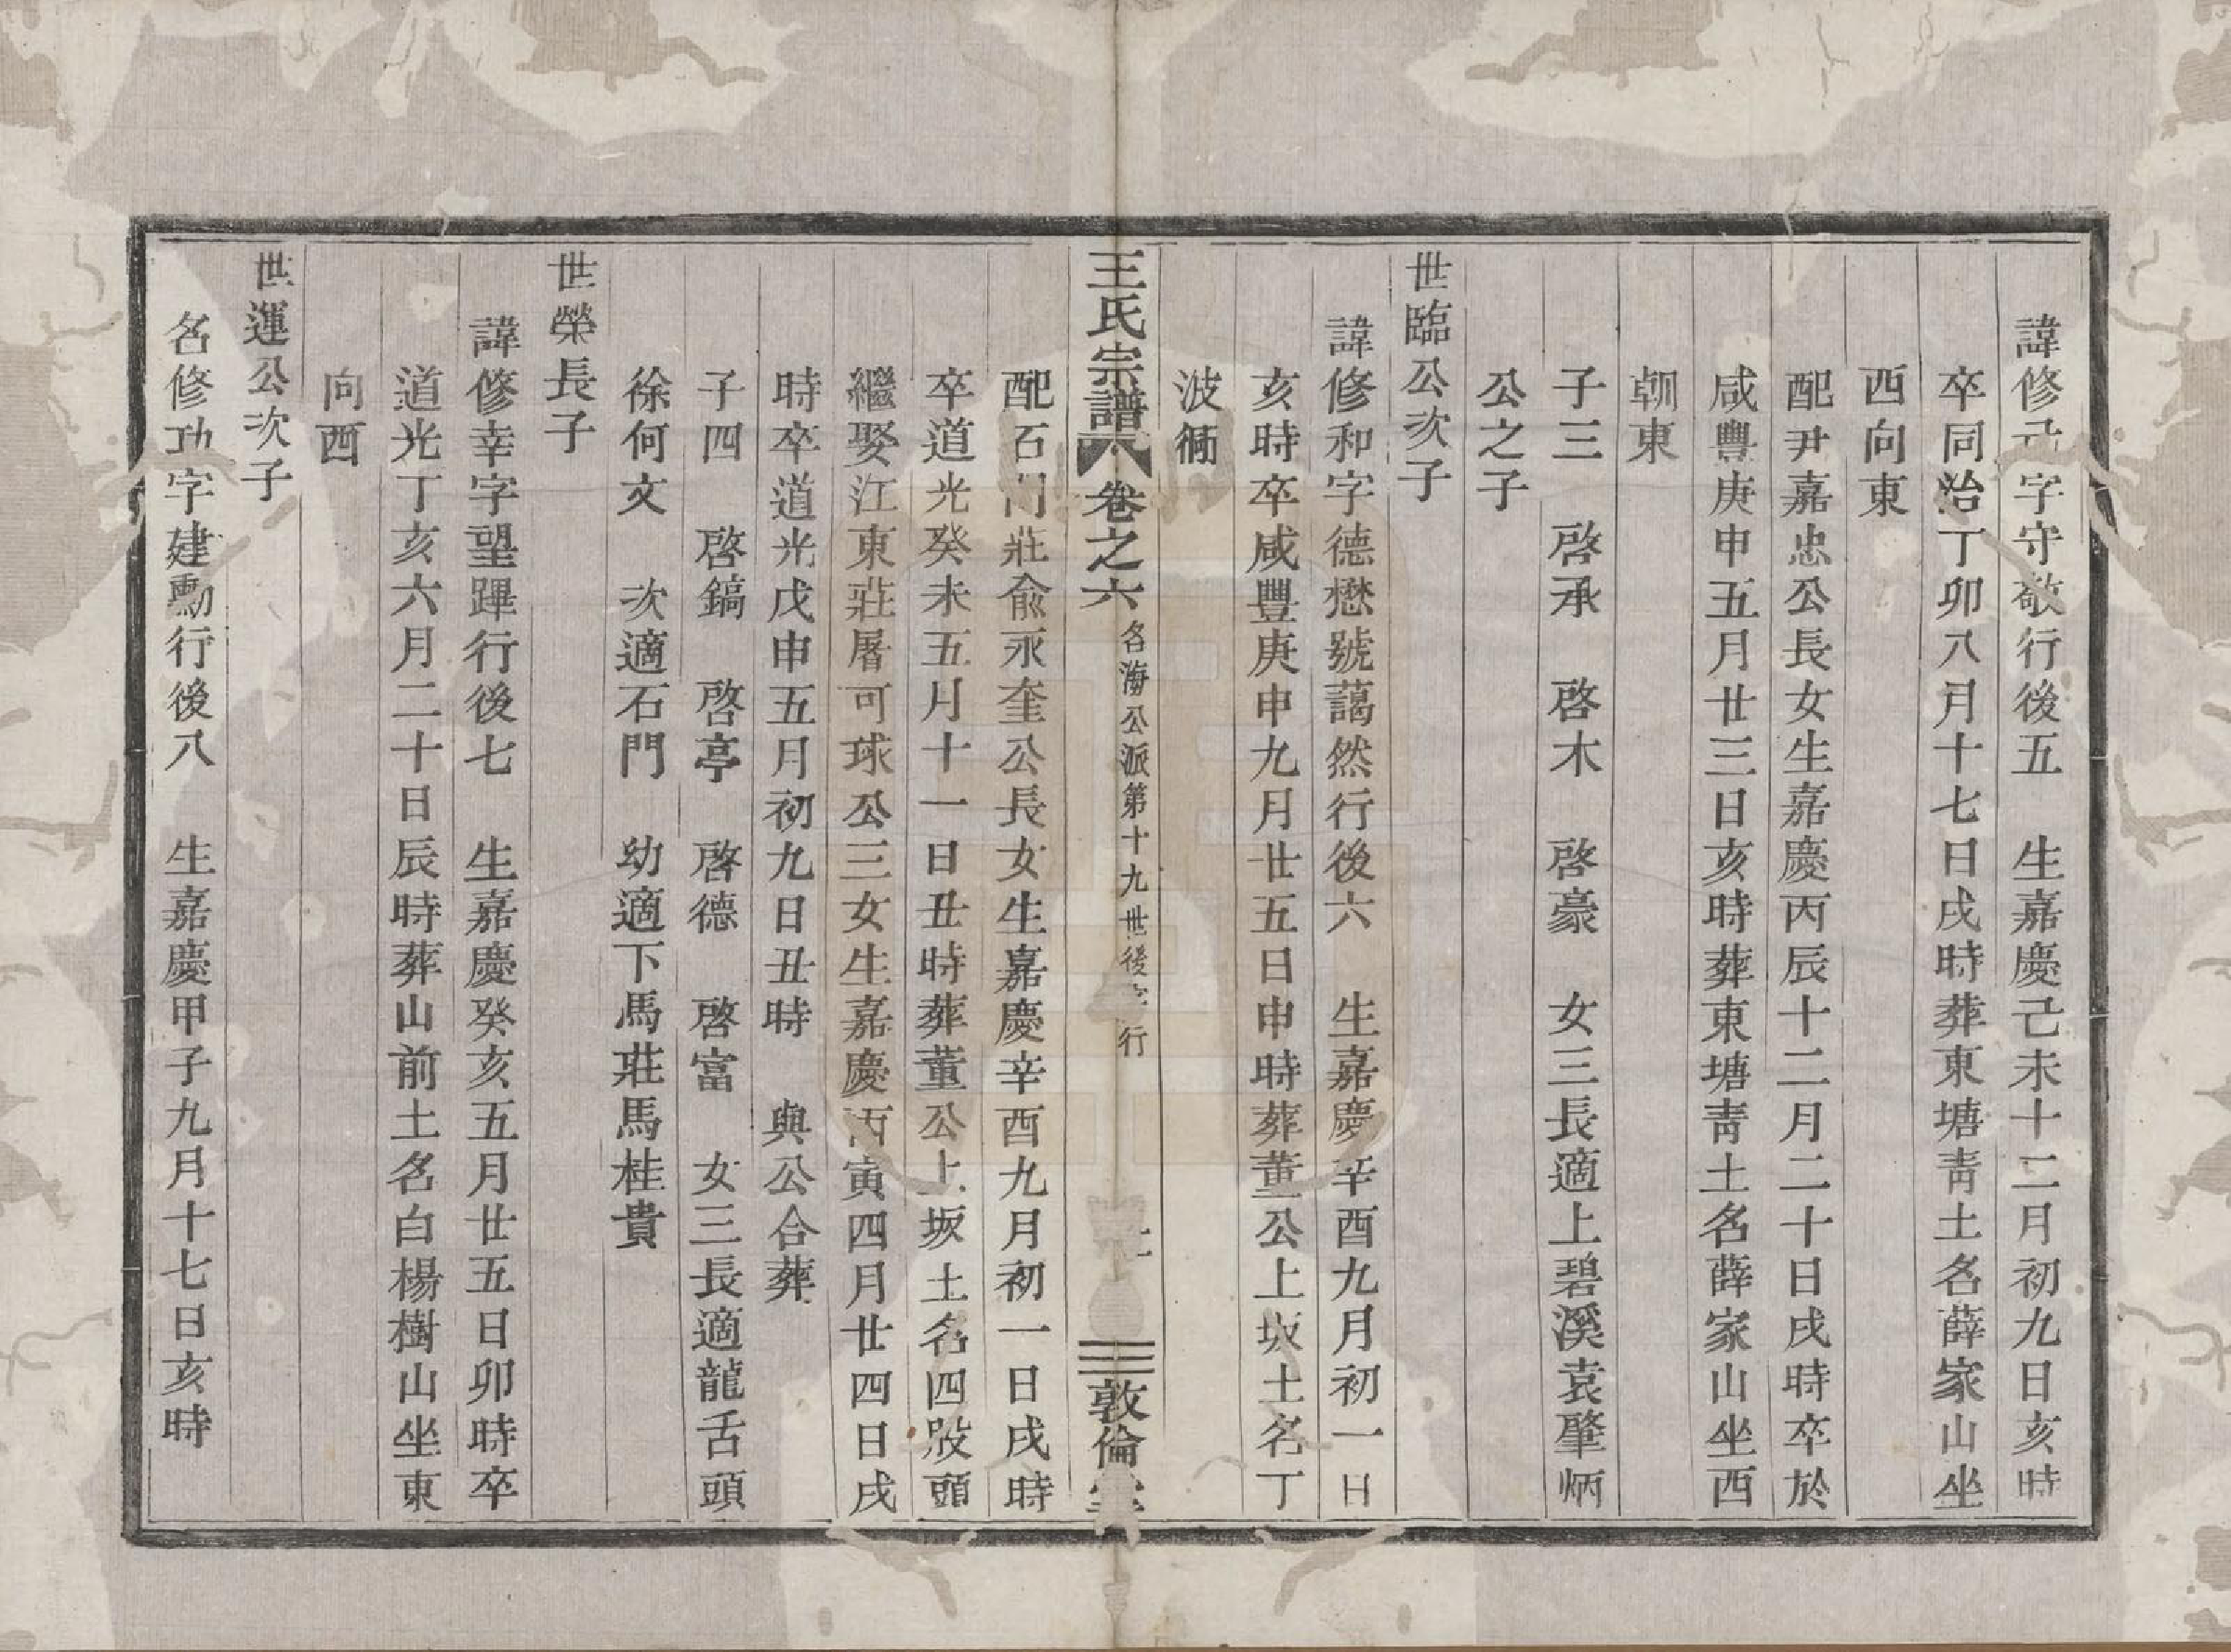 諱修己字守敬行後五　生嘉慶己未十二月初九日亥時
卒同治丁卯八月十七日戌時葬東塘靑土名薛家山坐
西向東
配尹嘉忠公長女生嘉慶丙辰十二月二十日戌時卒於
咸豐庚申五月廿三日亥時葬東塘靑土名薛家山坐西
朝東
子三　啓承　啓木　啓豪　女三長適上碧溪袁肇炳
公之子
世臨公次子
諱修和字德懋號藹然行後六　生嘉慶辛酉九月初一日
亥時卒咸豐庚申九月廿五日申時葬董公上坂土名丁
波衕
王氏宗譜　卷之六　名海公派第十九世後字行　敦倫堂
配石門莊俞永奎公長女生嘉慶辛酉九月初一日戌時
卒道光癸未五月十一日丑時葬董公上坂土名四股頭
繼娶江東莊屠可球公三女生嘉慶丙寅四月廿四日戌
時卒道光戊申五月初九日丑時　與公合葬
子四　啓鎬　啓亭　啓德　啓富　女三長適龍舌頭
徐何文　次適石門　幼適下馬莊馬桂貴
世榮長子
諱修幸字望蹕行後七　生嘉慶癸亥五月廿五日卯時卒
道光丁亥六月二十日辰時葬山前土名白楊樹山坐東
向西
世運公次子
名修功字建勳行後八　生嘉慶甲子九月十七日亥時